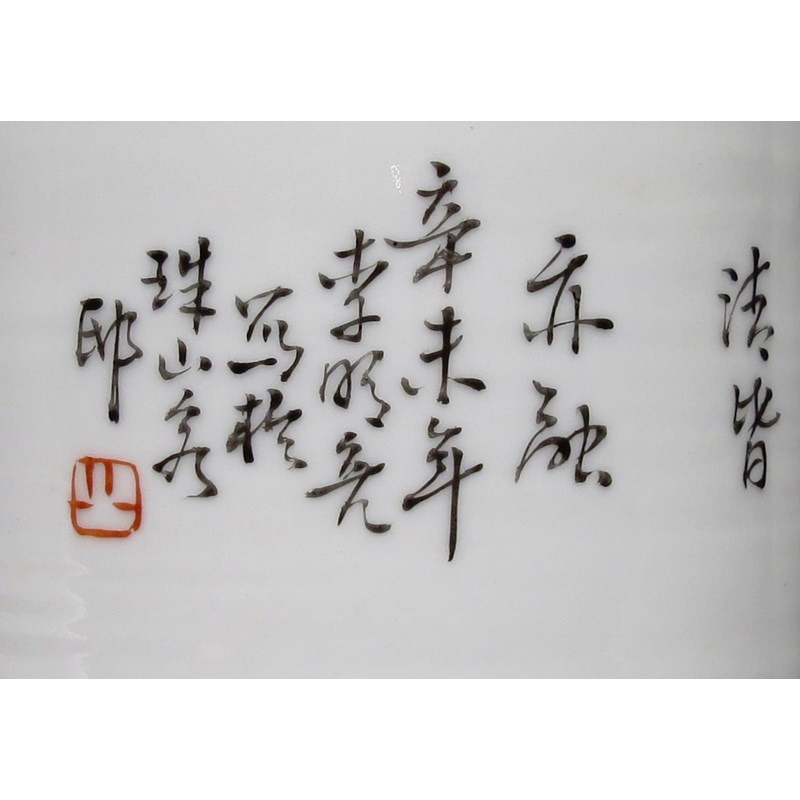 清皆
亦融
辛未年
李明亮
写於
珠山客
邸